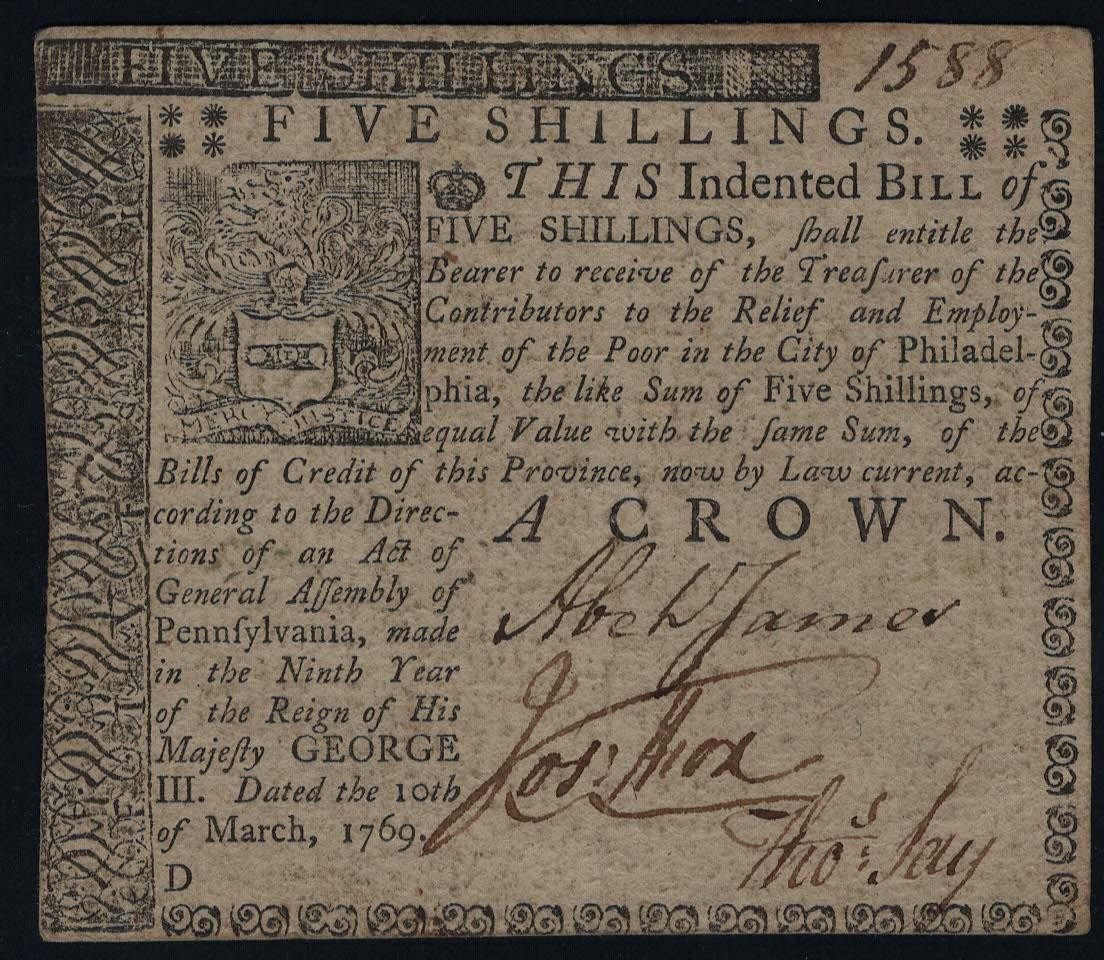 FIVE SHILLINGS
1588
FIVE SHILLINGS.
THIS Indented BILL of
FIVE SHILLINGS, ſhall entitle the
Bearer to receive of the Treaſurer of the
Contributors to the Relief and Employ-
ment of the Poor in the City of Philadel-
phia, the like Sum of Five Shillings, of
equal Value with the ſame Sum, of the
Bills of Credit of this Province, now by Law current, ac-
cording to the Direc-
tions of an Act of
General Aſſembly of
Pennſylvania, made
in the Ninth Year
of the Reign of His
Majeſty GEORGE
III. Dated the 10th
of March, 1769.
D
MERCY JUSTICE
A CROWN.
Abel James
Jos: Fox
Thos: Say